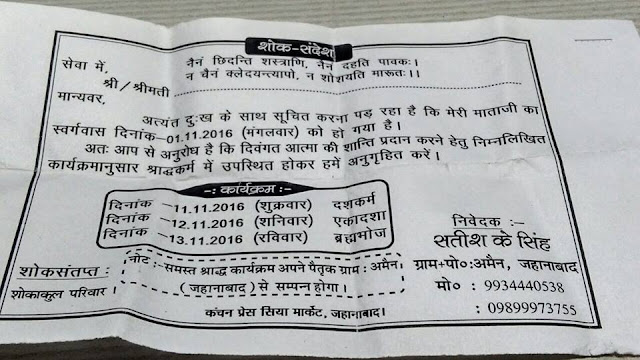 शोक-संदेश
नैनं छिदन्ति शस्त्राणि, नैनं दहति पावकः।
न चैनं क्लेदयन्त्यापो, न शोशयति मारूतः।।
सेवा में,
श्री/श्रीमती
मान्यवर,
अत्यंत दुःख के साथ सूचित करना पड़ रहा है कि मेरी माताजी का
स्वर्गवास दिनांक-01.11.2016 (मंगलवार) को हो गया है।
अतः आप से अनुरोध है कि दिवंगत आत्मा की शान्ति प्रदान करने हेतु निम्नलिखित
कार्यक्रमानुसार श्राद्धकर्म में उपस्थित होकर हमें अनुगृहित करें।
-: कार्यक्रम :-
दिनांक -11.11.2016 (शुक्रवार) दशकर्म
दिनांक -12.11.2016 (शनिवार) एकादशा
दिनांक -13.11.2016 (रविवार) ब्रह्मभोज
नोट :- समस्त श्राद्ध कार्यक्रम अपने पैतृक ग्राम : अमैन,
(जहानाबाद) से सम्पन्न होगा।
शोकसंतप्त :
शोकाकुल परिवार।
निवेदक :-
सतीश के सिंह
ग्राम+पो०:अमैन, जहानाबाद
मो० : 9934440538
: 09899973755
कंचन प्रेस सिया मार्केट, जहानाबाद।